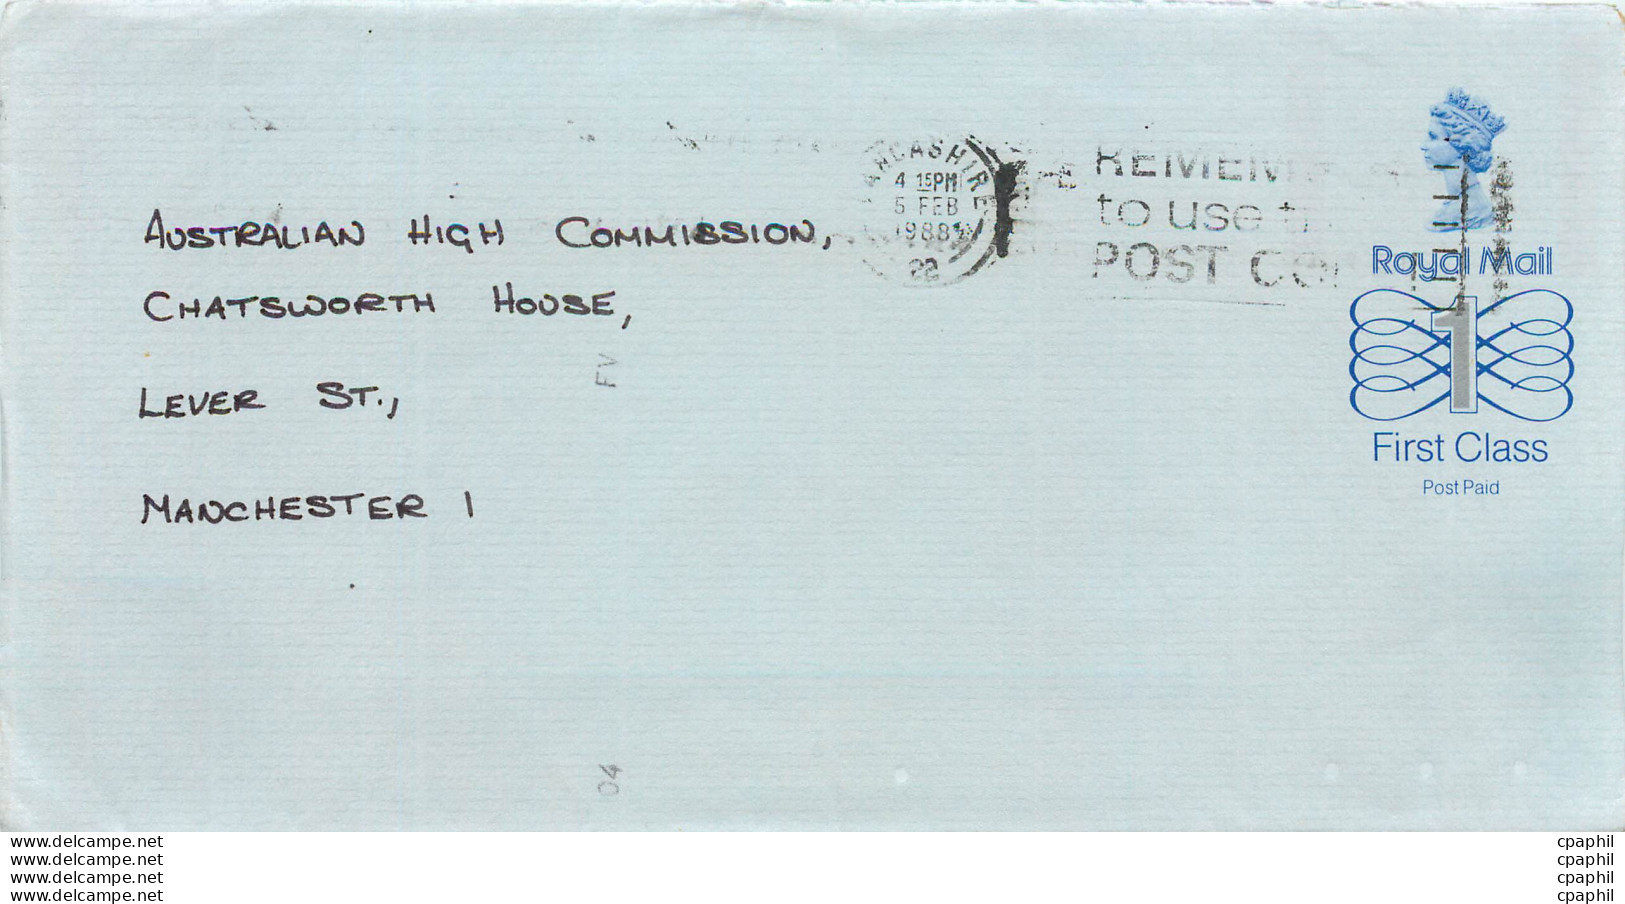 AUSTRALIAN HIGH COMMISSION,
CHATSWORTH HOUSE,
LEVER ST.,
MANCHESTER 1
4 15PM
5 FEB
1988
22
to use
POST
Royal Mail
1
First Class
Post Paid
FV
04
www.delcampe.net
www.delcampe.net
www.delcampe.net
www.delcampe.net
cpaphil
cpaphil
cpaphil
cpaphil